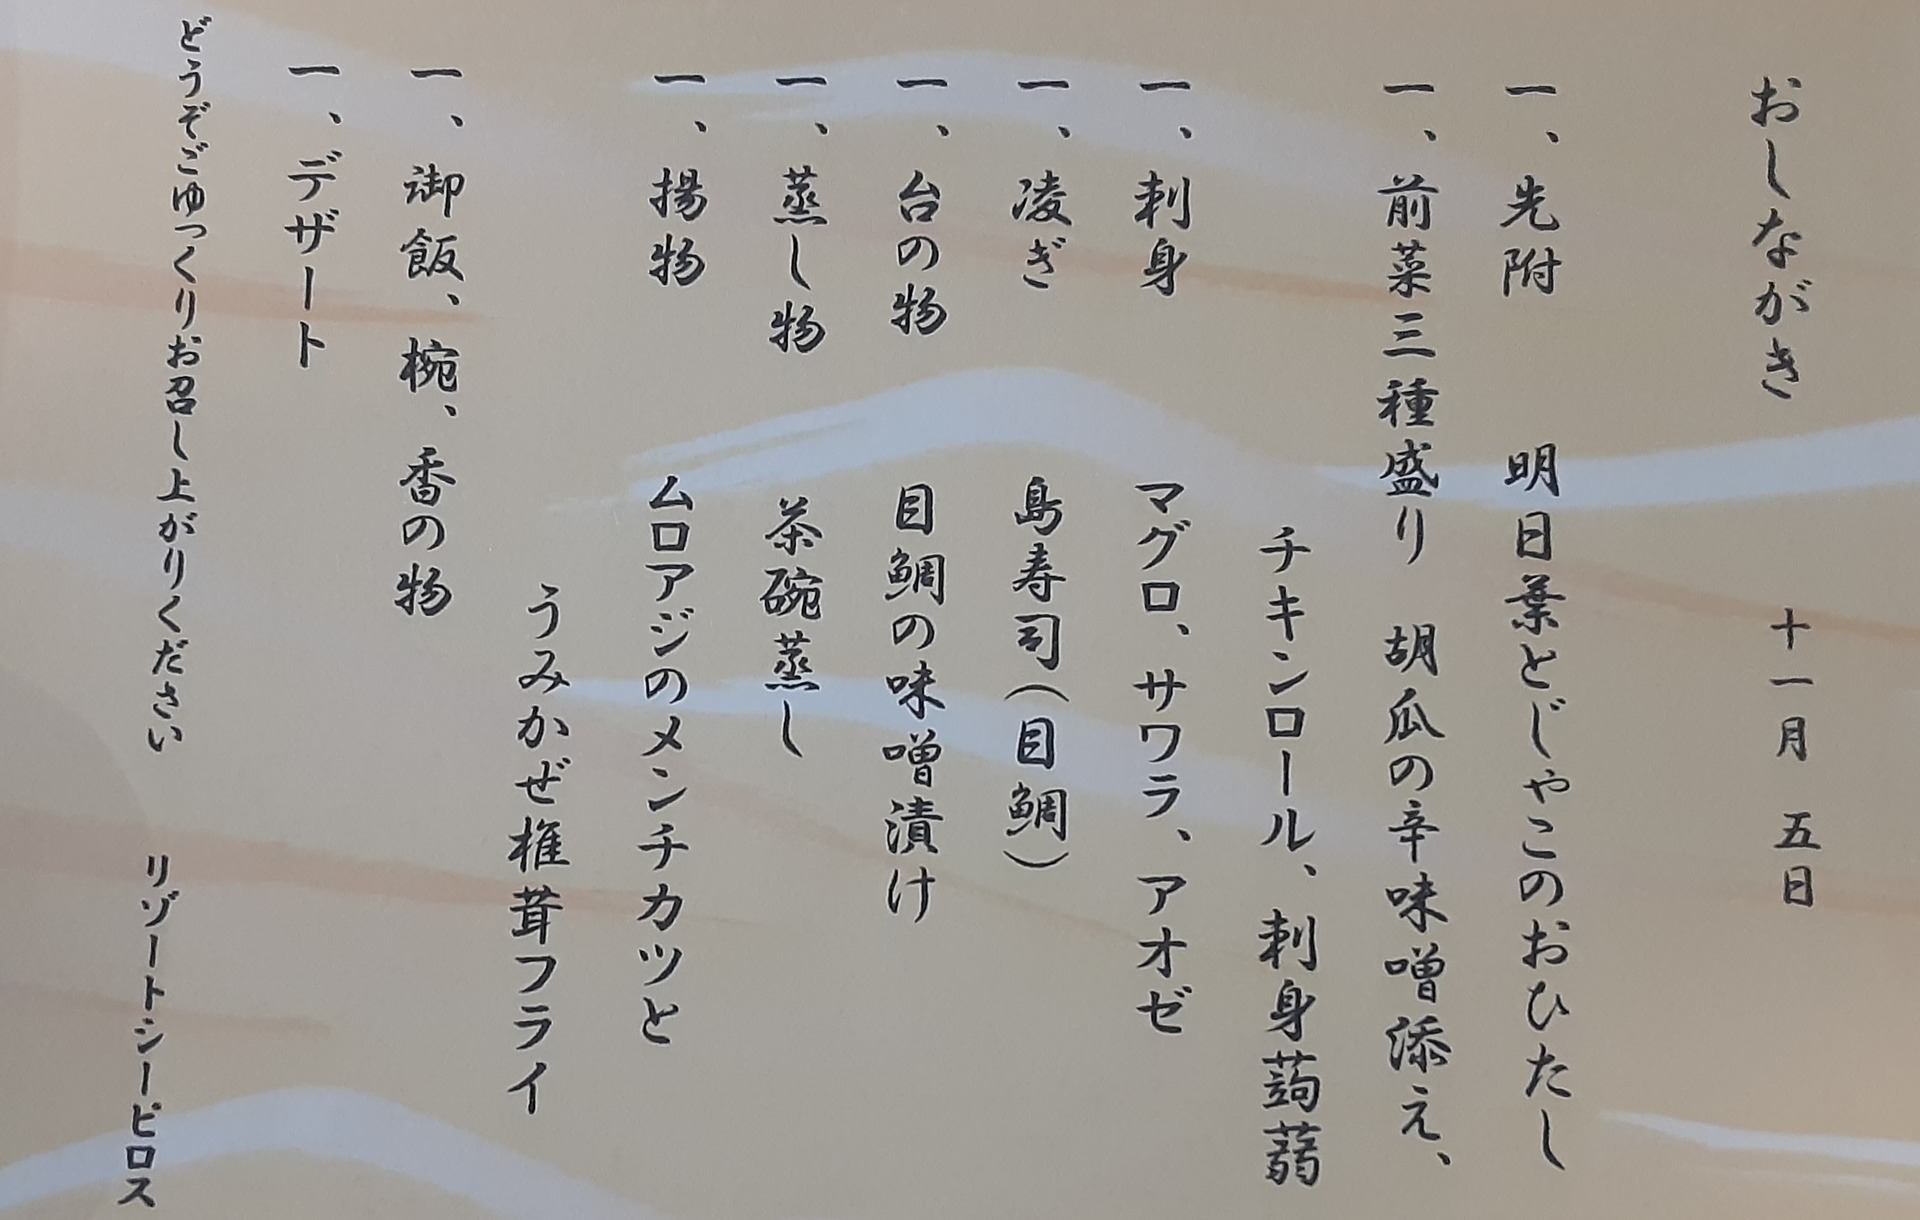 おしながき 十一月 五日
一、先附 明日葉とじゃこのおひたし
一、前菜三種盛り 胡瓜の辛味噌添え、
チキンロール、刺身蒟蒻
一、刺身 マグロ、サワラ、アオゼ
一、凌ぎ 島寿司(目鯛)
一、台の物 目鯛の味噌漬け
一、蒸し物 茶碗蒸し
一、揚物 ムロアジのメンチカツと
うみかぜ椎茸フライ
一、御飯、椀、香の物
一、デザート
どうぞごゆっくりお召し上がりください リゾートシーピロス